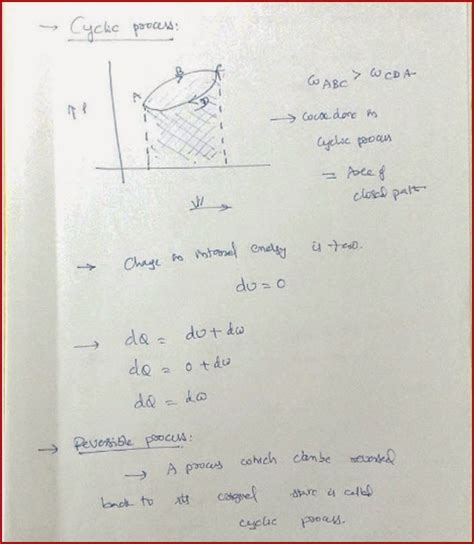 → Cyclic process:
B C
A D
↑ P
V →
W ABC > W CDA
→ work done in
cyclic process
= Area of
closed path
→ Change in internal energy is zero.
dU = 0
→ dQ = dU + dW
dQ = 0 + dW
dQ = dW
→ Reversible process:
→ A process which can be reversed
back to its original state is called
cyclic process.